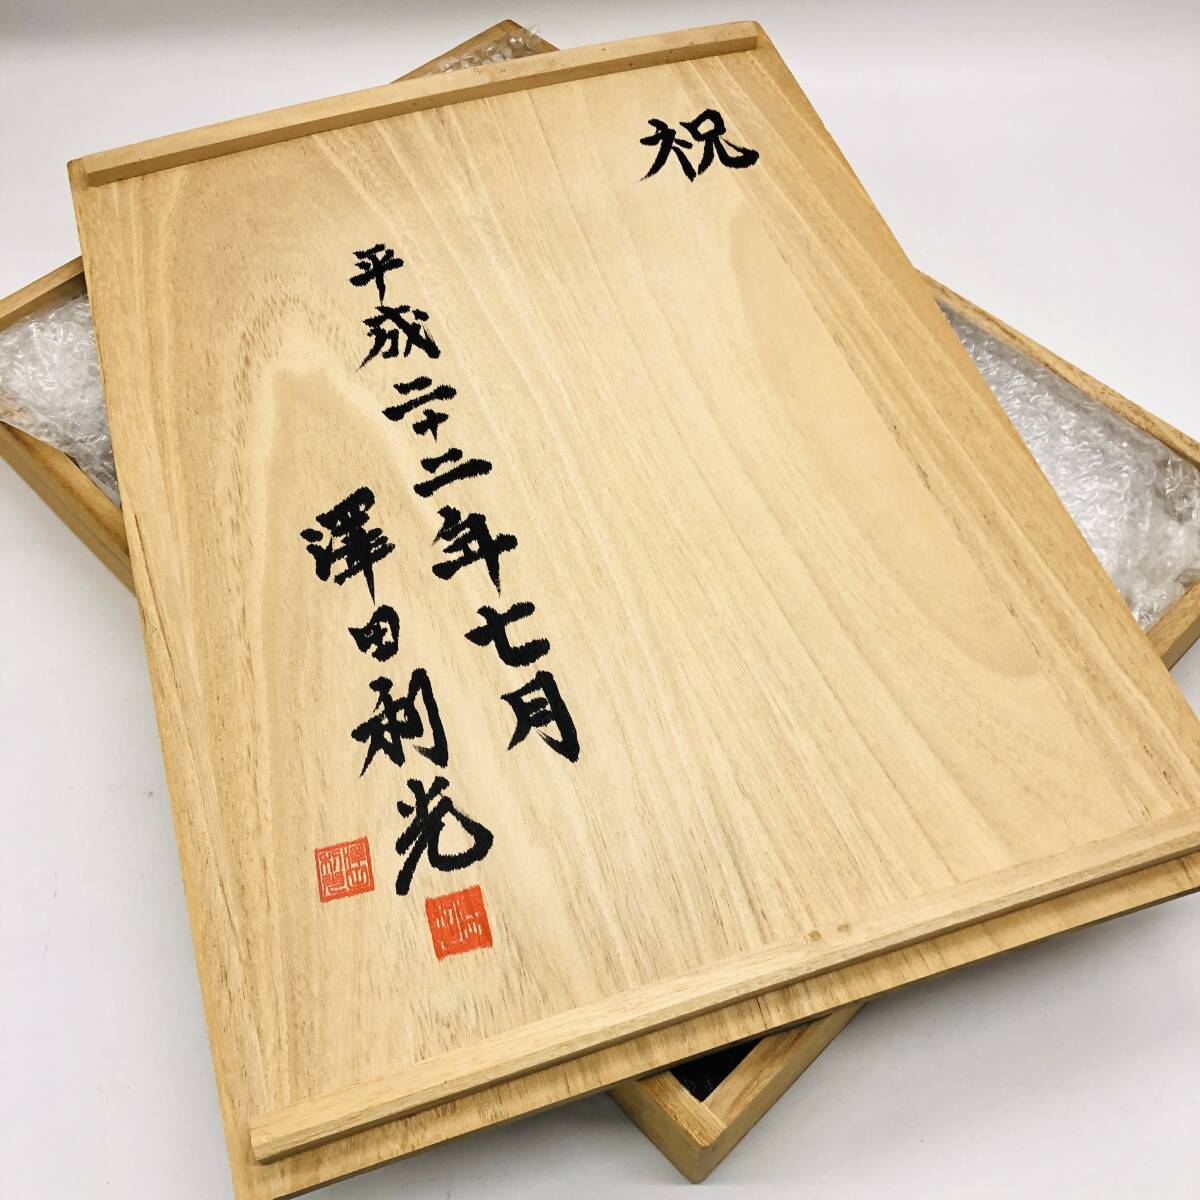 祝
平成二十二年七月
澤田利光